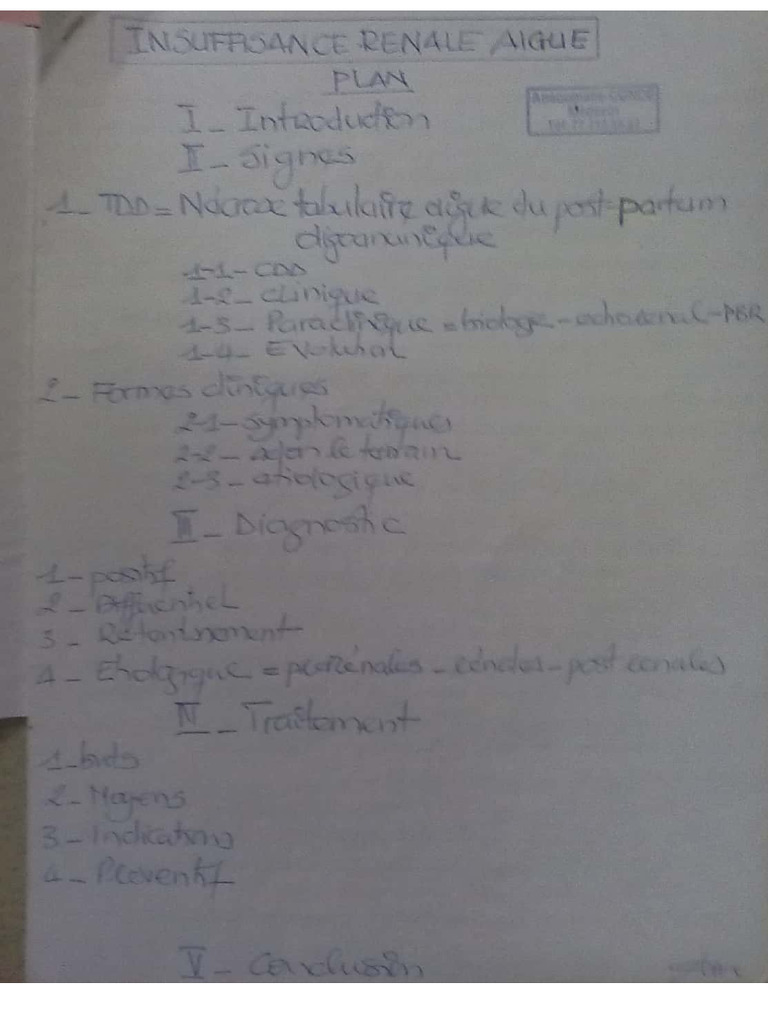 INSUFFISANCE RENALE AIGUE
PLAN
I_ Introduction
II_ Signes
1_ TDD = Nécrose tubulaire aigue du post-partum
1-1- CDD
1-2- clinique
1-3- Paraclinique = biologie - - PBR
1-4- Evolution
2- Formes cliniques
2-1- symptomatiques
2-2- selon le terrain
2-3- etiologique
III_ Diagnostic
1- positif
2- Differentiel
3- Retentissement
4- Etiologique = prérénales - rénales - post renales
IV_ Traitement
1-buts
2- Moyens
3- Indications
4- Preventif
V- Conclusion